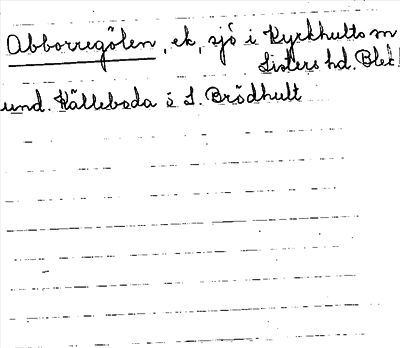 Abborregölen, ek, sjö i Kyrkhults sn
Listers hd. Blek.
und. Källeboda o S. Brödhult